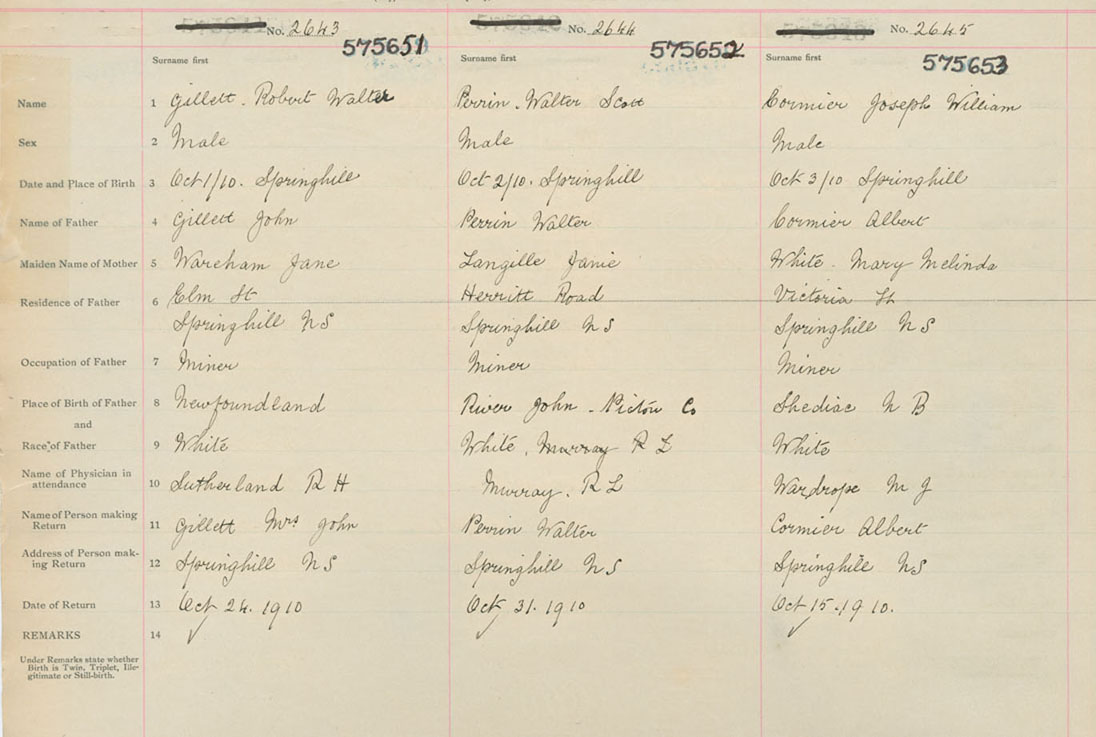 No. 2643 No. 2644 No. 2645
575651 575652 575653
Surname first Surname first Surname first
Name 1 Gillett. Robert Walter Perrin. Walter Scott Cormier Joseph William
Sex 2 Male Male Male
Date and Place of Birth 3 Oct 1/10. Springhill Oct 2/10. Springhill Oct 3/10 Springhill
Name of Father 4 Gillett John Perrin Walter Cormier Albert
Maiden Name of Mother 5 Wareham Jane Langille Janie White. Mary Melinda
Residence of Father 6 Elm St Herritt Road Victoria St
Springhill NS Springhill NS Springhill NS
Occupation of Father 7 Miner Miner Miner
Place of Birth of Father 8 Newfoundland River John - Pictou Co Shediac N B
and
Race of Father 9 White White. Murray R L White
Name of Physician in
attendance 10 Sutherland R H Murray. R L Wardrope M J
Name of Person making
Return 11 Gillett Mrs John Perrin Walter Cormier Albert
Address of Person mak-
ing Return 12 Springhill NS Springhill NS Springhill NS
Date of Return 13 Oct 24. 1910 Oct 31. 1910 Oct 15. 1910.
REMARKS 14
Under Remarks state whether
Birth is Twin, Triplet, Ille-
gitimate or Still-birth.